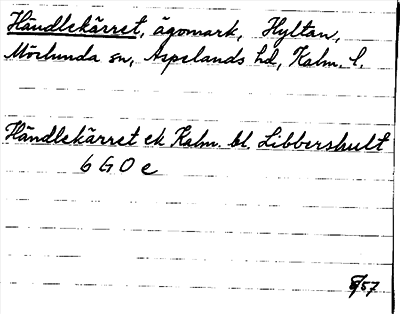 Händlekärret, ägomark, Hyltan,
Mörlunda sn, Aspelands hd, Kalm. l.
Händlekärret ek Kalm. bl. Libbershult
6 G 0 e
8/57